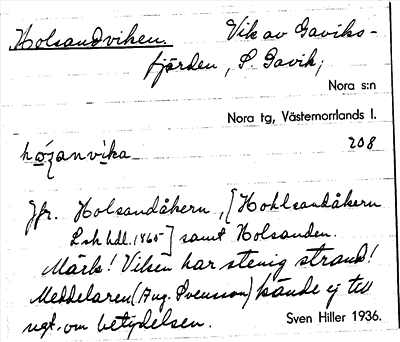 Holsandviken. Vik av Gaviks-
fjärden, S. Gavik;
Nora s:n
Nora tg, Västernorrlands l.
208
hózanvika
Jfr. Holsandåkern, [Hohlsandåkern
Lsk hdl. 1865] samt Holsanden.
Märk! Viken har stenig strand!
Meddelaren (Aug. Svensson) kände ej till
ngt. om betydelsen. Sven Hiller 1936.